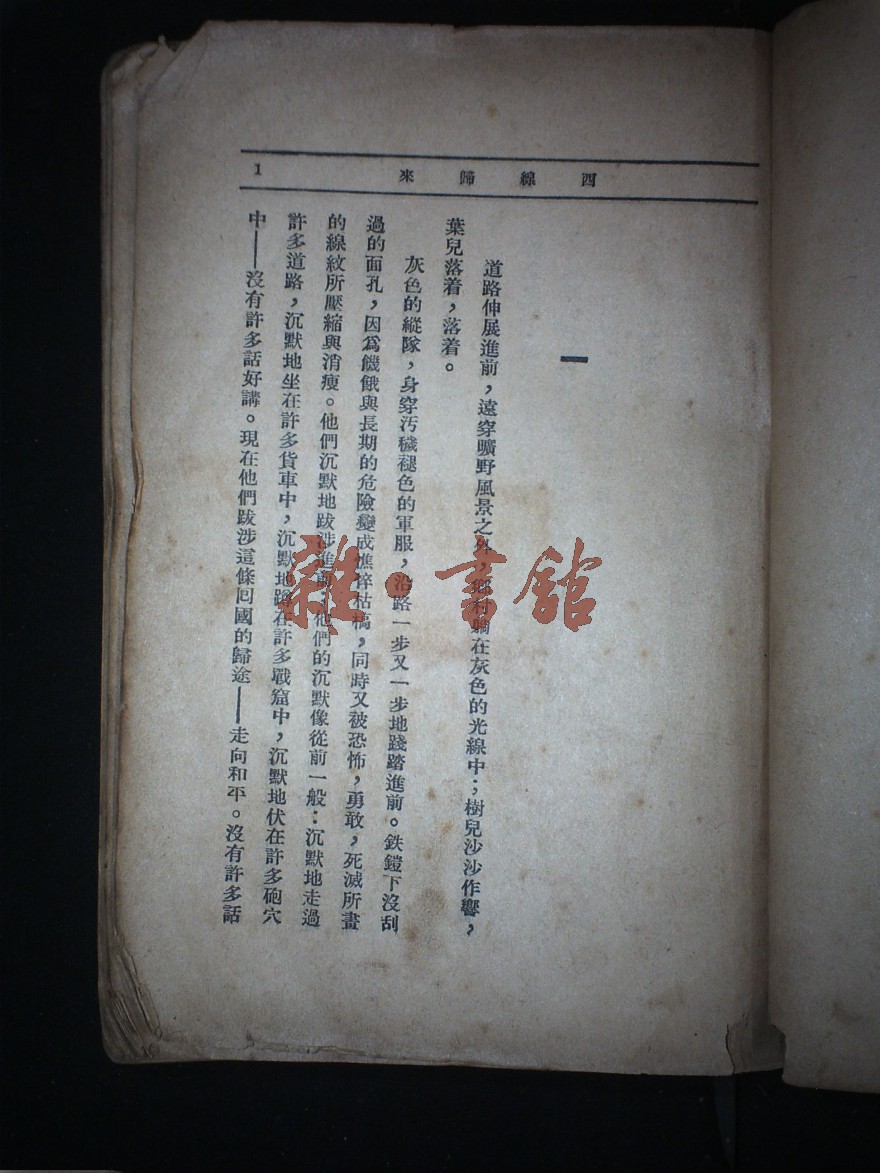 西線歸來
1
一
道路伸展進前，遠穿曠野風景之外，鄉村躺在灰色的光線中；樹兒沙沙作響，
葉兒落着，落着。
灰色的縱隊，身穿汚穢褪色的軍服，沿路一步又一步地踐踏進前。鉄鎧下沒刮
過的面孔，因爲饑餓與長期的危險變成憔悴枯槁，同時又被恐怖，勇敢，死滅所畫
的線紋所壓縮與消瘦。他們沉默地跋涉進前，他們的沉默像從前一般：沉默地走過
許多道路，沉默地坐在許多貨車中，沉默地蹲在許多戰窟中，沉默地伏在許多砲穴
中——沒有許多話好講。現在他們跋涉這條囘國的歸途——走向和平。沒有許多話
雜·書館